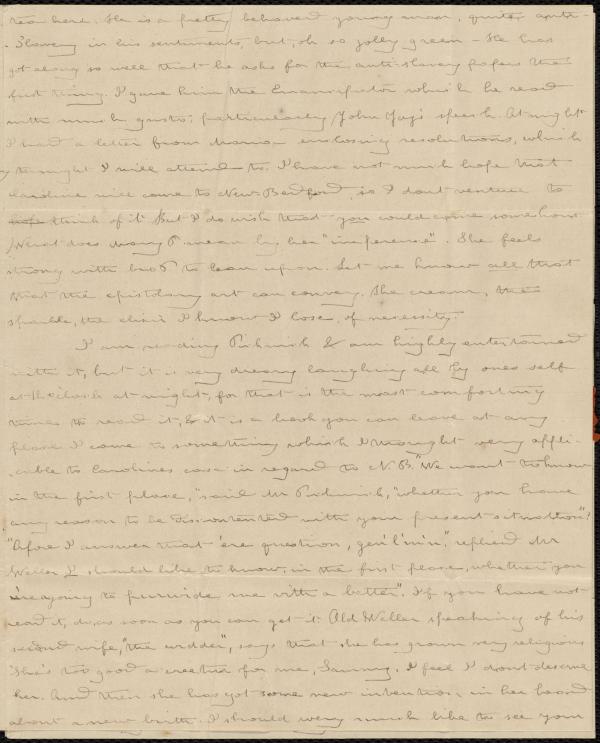 here. He is a pretty behaved young man, quite anti-
-Slavery in his sentiments, but, oh so jolly green - He has
got along so well that he asks for the anti-slavery papers the
first thing. I gave him the Emancipator which he read
with much gusto; particularly John Jay's speech. At night
I had a letter from Mama enclosing resolutions, which
to night I will attend to. I have not much hope that
Caroline will come to New-Bedford, so I dont venture to
think of it. But I do wish that you would come somehow
What does Mary P mean by her "inference". She feels
strong with to lean upon. Let me know all that
that the epistolary art can convey. The cream, the
sparkle, the elixir I know I lose, of necessity.
I am reading Pickwick & am highly entertained
with it, but it is very dreary laughing all by ones self
at o'clock at night, for that is the most comforting
time to read it, & it is a book you can leave at any
place I came to something which I thought very appli-
cable to Carolines case in regard to N. B. "We want to know
in the first place," said Mr Pickwick, "whether you have
any reason to be discontented with your present situation"?
"Afore I answer that 'ere question, gen'l'm'n," replied Mr
Weller I should like to know, in the first place, whether you
're agoing to purwide me with a better". If you have not
read it, do, as soon as you can get it. Old Weller speaking of his
second wife, "the widder", says that she has grown very religious
"She's too good a creetur for me, Sammy. I feel I dont deserve
her. And then she has got some new invention in her head
about a new birth. I should wery much like to see your